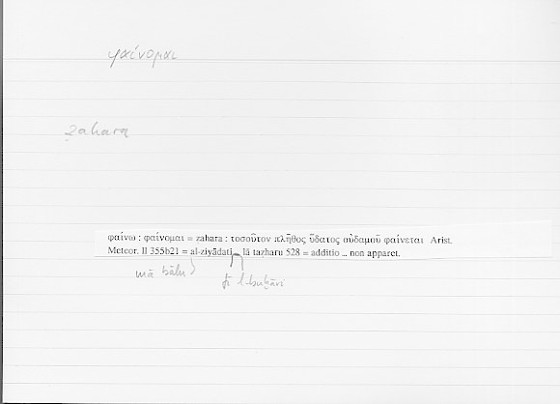 φαίνομαι
ẓahara
φαίνω ; φαίνομαι = zahara ; τοσοῦτον πλῆθος ὕδατος οὐδαμοῦ φαίνεται Arist.
Meteor. II 355b21 = al-ziyādati _ lā taẓharu 528 = additio .. non apparet.
mā bālu fī l-buḫāri